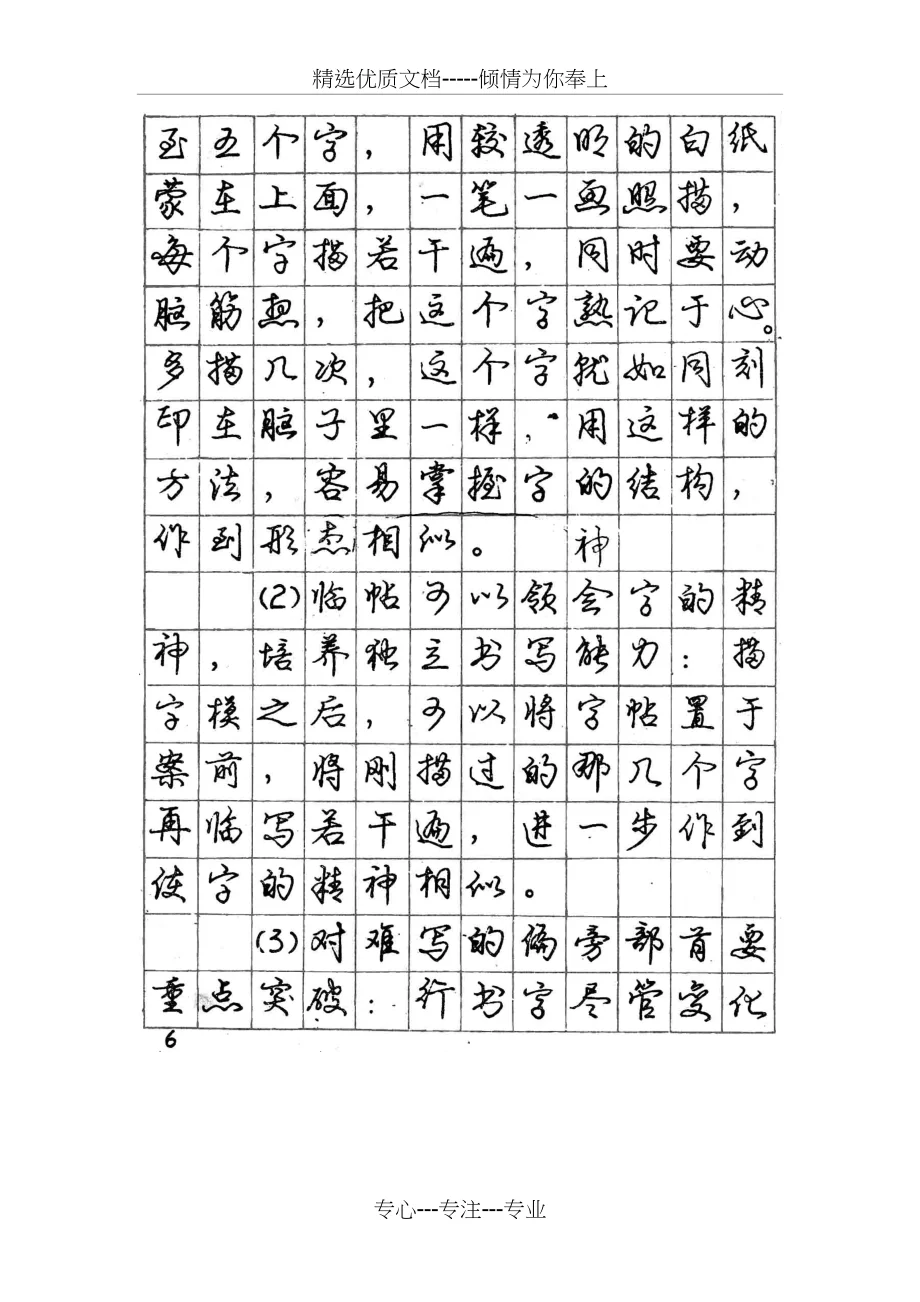 精选优质文档-----倾情为你奉上
至五个字，用较透明的白纸
蒙在上面，一笔一画照描，
每个字描若干遍，同时要动
脑筋想，把这个字熟记于心。
多描几次，这个字就如同刻
印在脑子里一样，用这样的
方法，容易掌握字的结构，
作到形态相似。 神
(2)临帖可以领会字的精
神，培养独立书写能力：描
字模之后，可以将字帖置于
案前，将刚描过的那几个字
再临写若干遍，进一步作到
使字的精神相似。
(3)对难写的偏旁部首要
重点突破：行书字尽管变化
6
专心---专注---专业